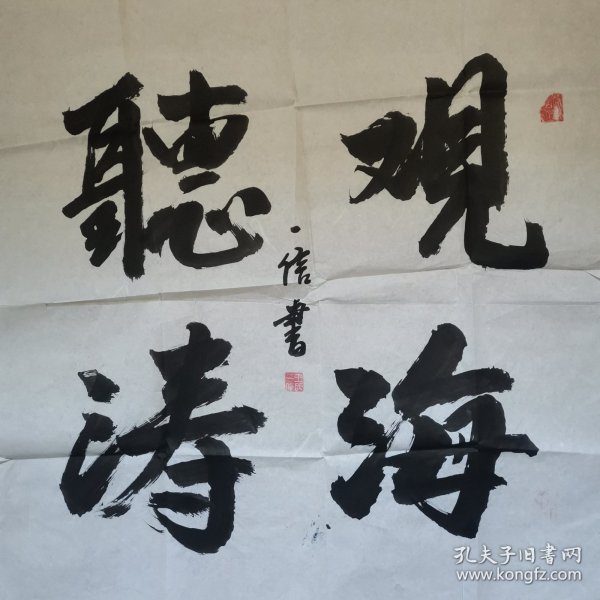 观海
聽涛
一信書
孔夫子旧書网
www.kongfz.com